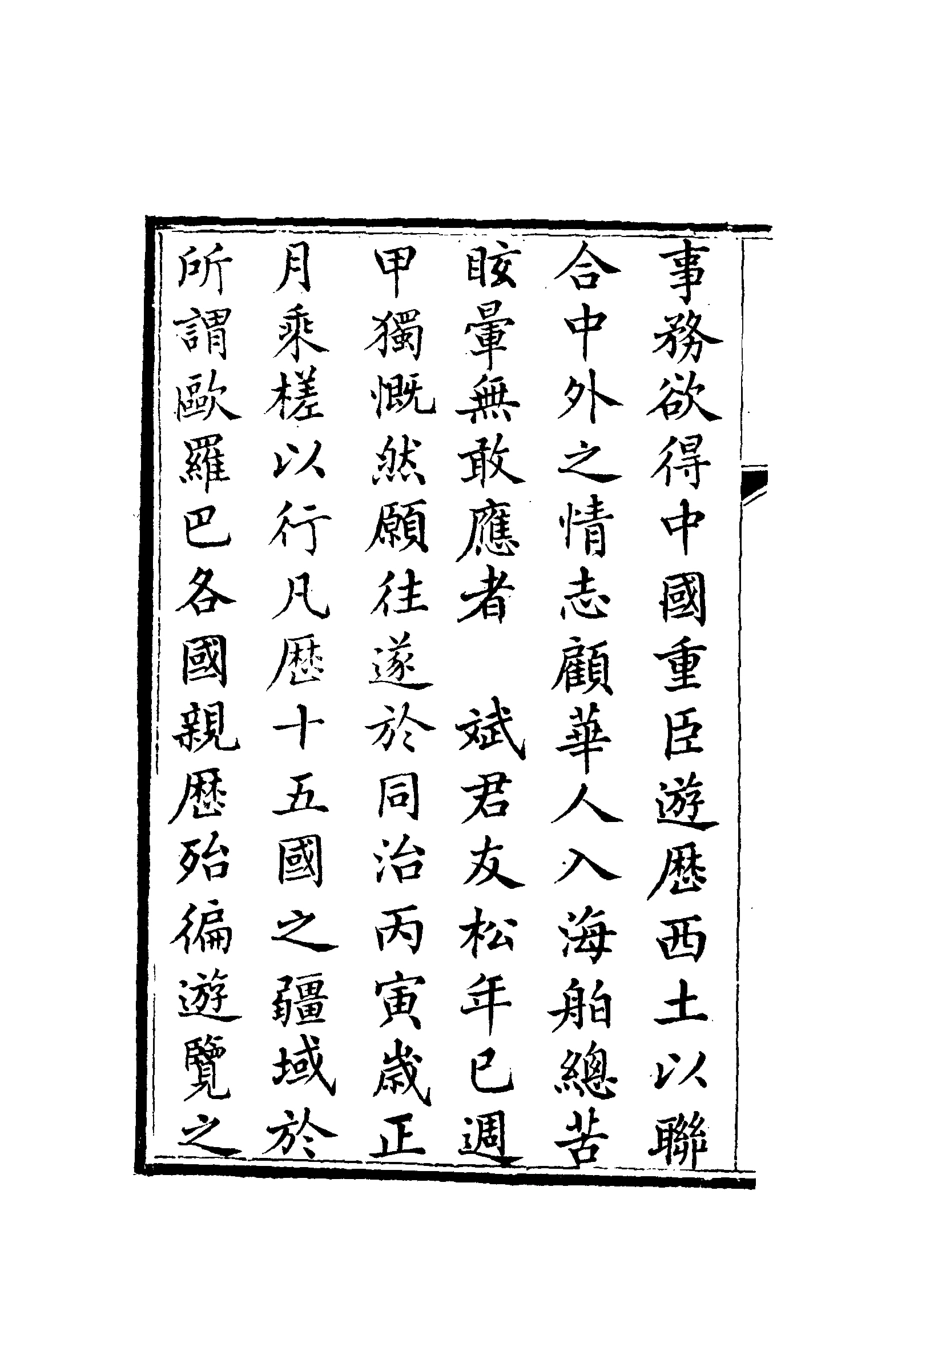 事務欲得中國重臣遊歷西土以聯
合中外之情志顧華人入海舶總苦
眩暈無敢應者　斌君友松年已週
甲獨慨然願往遂於同治丙寅歲正
月乘槎以行凡歷十五國之疆域於
所謂歐羅巴各國親歷殆徧遊覽之